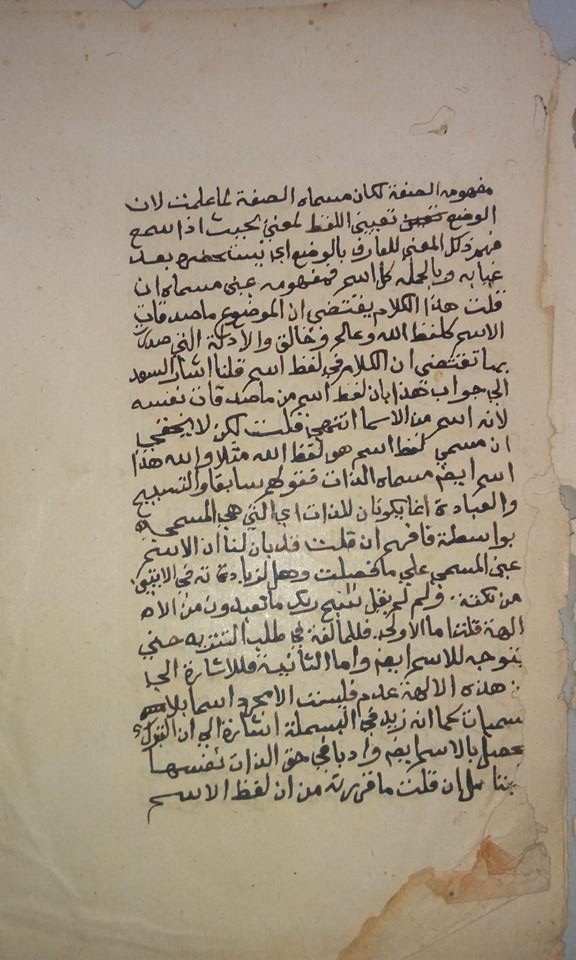 مفهومه الصفة لكان مسماه الصفة لما علمت لان
الوضع تعيين اللفظ لمعنى بحيث اذا سمع
فهم ذلك المعنى للعارف بالوضع اي بعد
غيابه وبالجمله كل اسم فمفهومه عين مسماه ان
قلت هذا الكلام يقتضي ان الموضوع ماصدقات
الاسم كلفظ الله وعالم وخالق والأدلة التي
بها تقتضي ان الكلام في لفظ اسم قلنا اشار السعد
الي جواب هذا بان لفظ اسم من ماصدقات نفسه
لانه اسم من الاسما انتهي قلت لكن لا يخفي
ان مسمي لفظ اسم هو لفظ الله مثلا والله هذا
اسم ايضم مسماه الذات فقولهم سابقا والتسبيح
والعبادة انما يكونان للذات اي التي هي المسمي
بواسطة فافهم ان قلت قد بان لنا ان الاسم
عين المسمي علي ما فصلت وهل لزيادته في الايتين
من نكتة ولم لم يقل سبح ربك ما تعبدون من الا
الهة قلنا اما الأولي فللمبالغة في طلب التنزيه حتي
يتوجه للاسم ايضم واما الثانية فللاشارة الي
ان هذه الالهة عدم فليست الا مجرد اسما بلا
مسميات كما انه زيد في البسملة اشارة الي ان التبرك
يحصل بالاسم ايضم وادبا في حق الذات نفسها
ان قلت ما قررته من ان لفظ الاسم